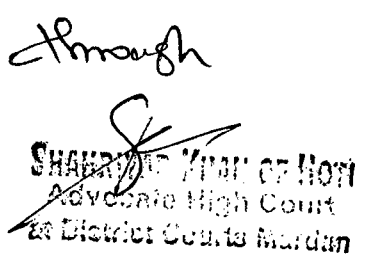 through
SHAHRIYAR KHAN OF HOTI
Advocate High Court
at District Courts Mardan